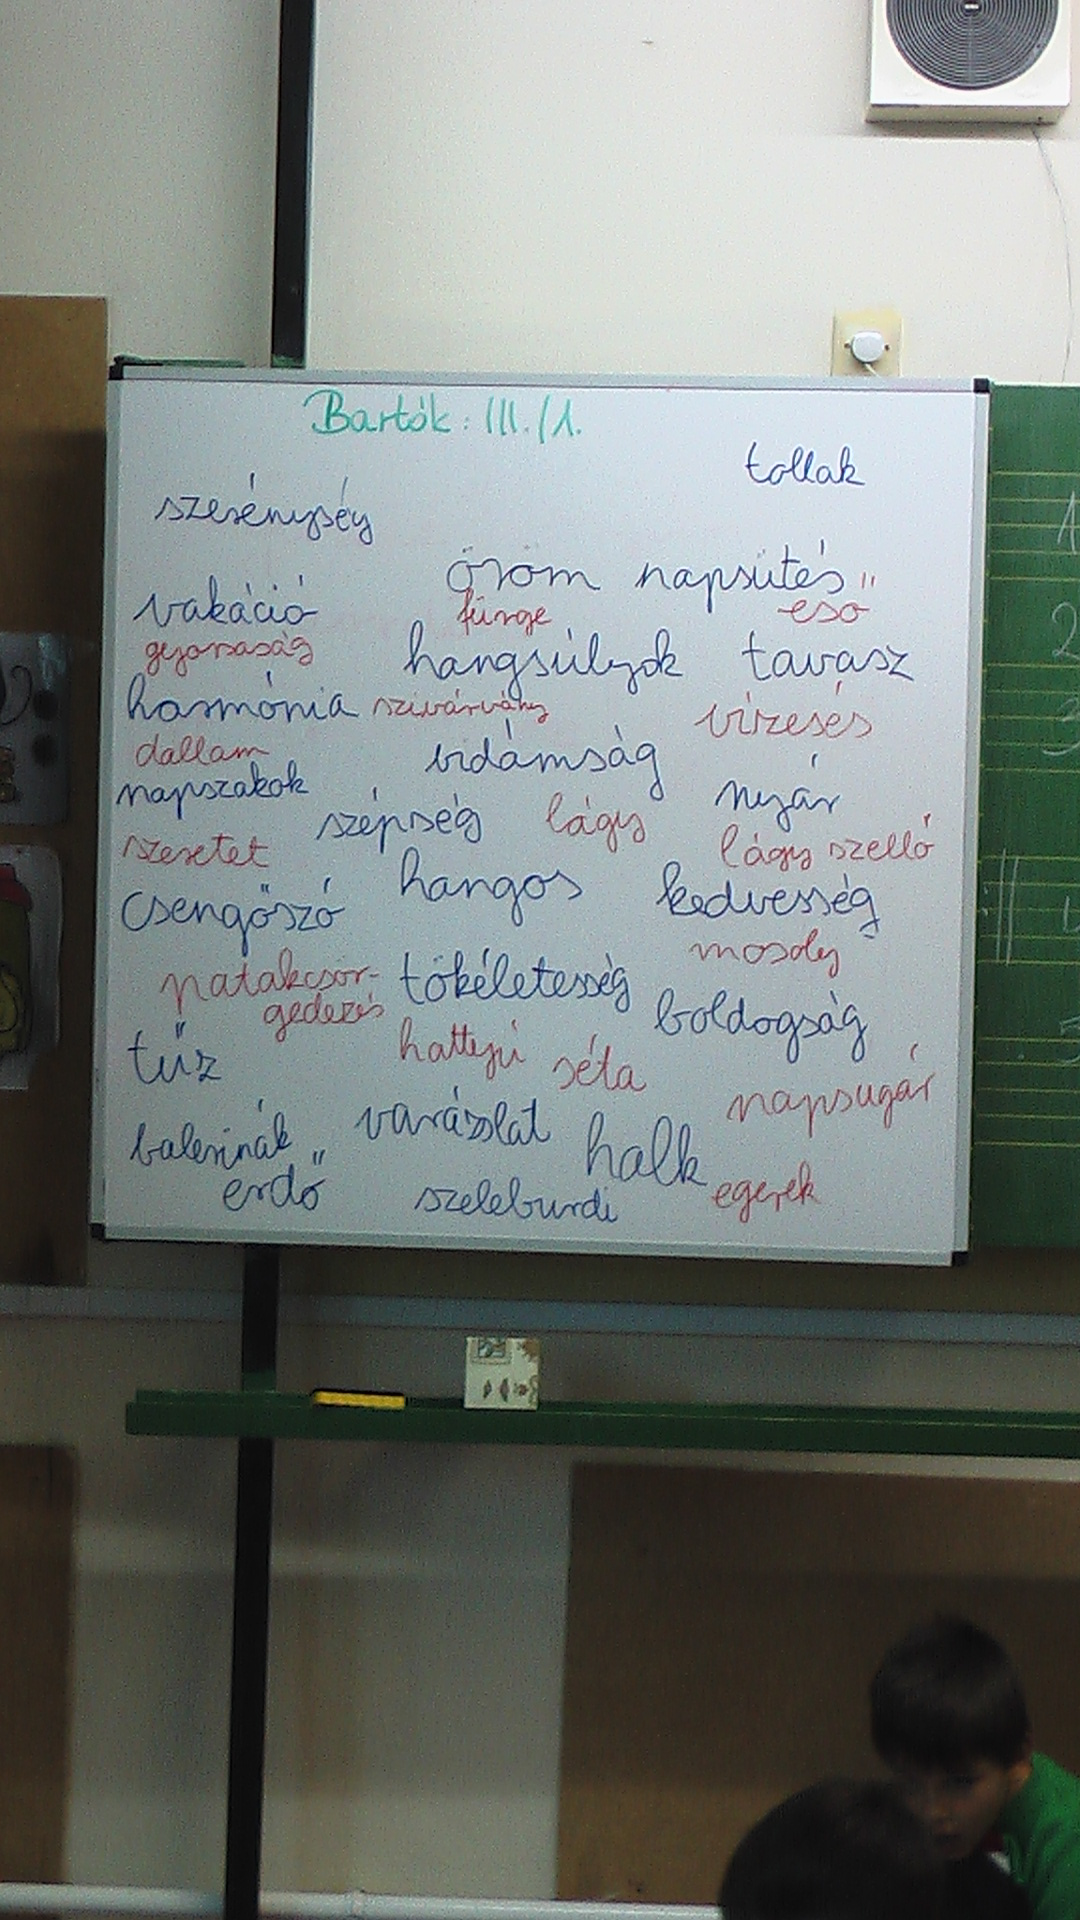 Bartók: III./1.
tollak
szerénység
öröm napsütés
vakáció fürge eső
gyorsaság hangsúlyok tavasz
harmónia szivárvány vízesés
dallam vidámság
napszakok nyár
szépség lágy
szeretet lágy szellő
csengőszó hangos kedvesség
mosoly
patakcsör- tökéletesség
gedezés boldogság
tűz hattyú séta
napsugár
balerinák varázslat halk
erdő szeleburdi egerek